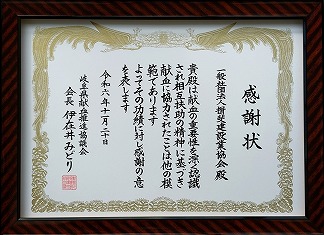 感謝状
一般社団法人揖斐建設業協会 殿
貴殿は献血の重要性を深く認識
され相互扶助の精神に基づき
献血に協力されたことは他の模
範であります
よってその功績に対し感謝の意
を表します
令和六年十一月二十日
岐阜県献血推進協議会
会長 伊在井みどり